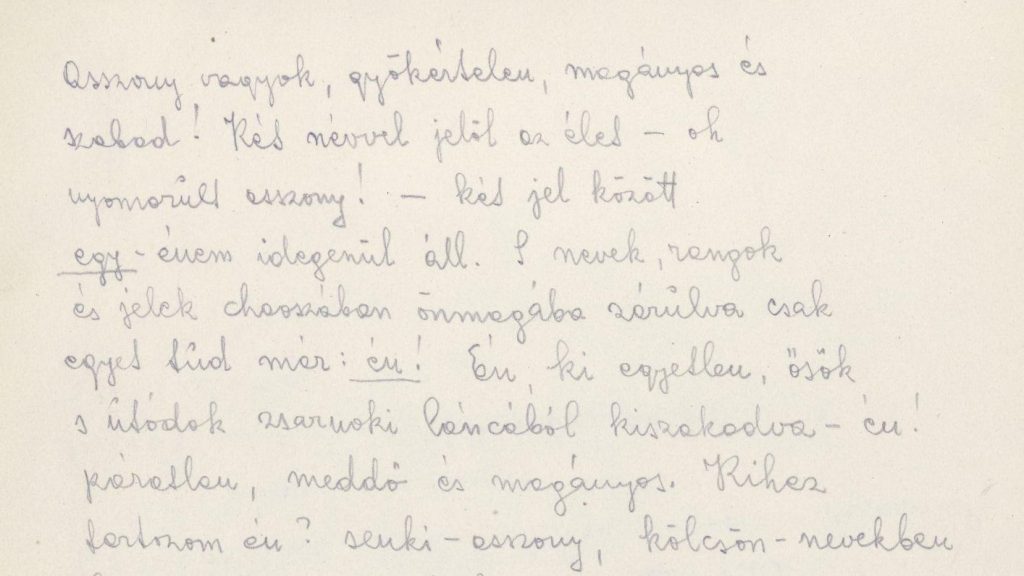 Asszony vagyok, gyökértelen, magányos és
szabad! Két névvel jelöl az élet – oh
nyomorúlt asszony! – két jel között
egy-énem idegenül áll. S nevek, rangok
és jelek chaoszában önmagába zárúlva csak
egyet túd már: én! Én, ki egyetlen, ősök
s útódok zsarnoki láncából kiszakadva – én!
páratlan, meddő és magányos. Kihez
tartozom én? senki-asszony, kölcsön-nevekben